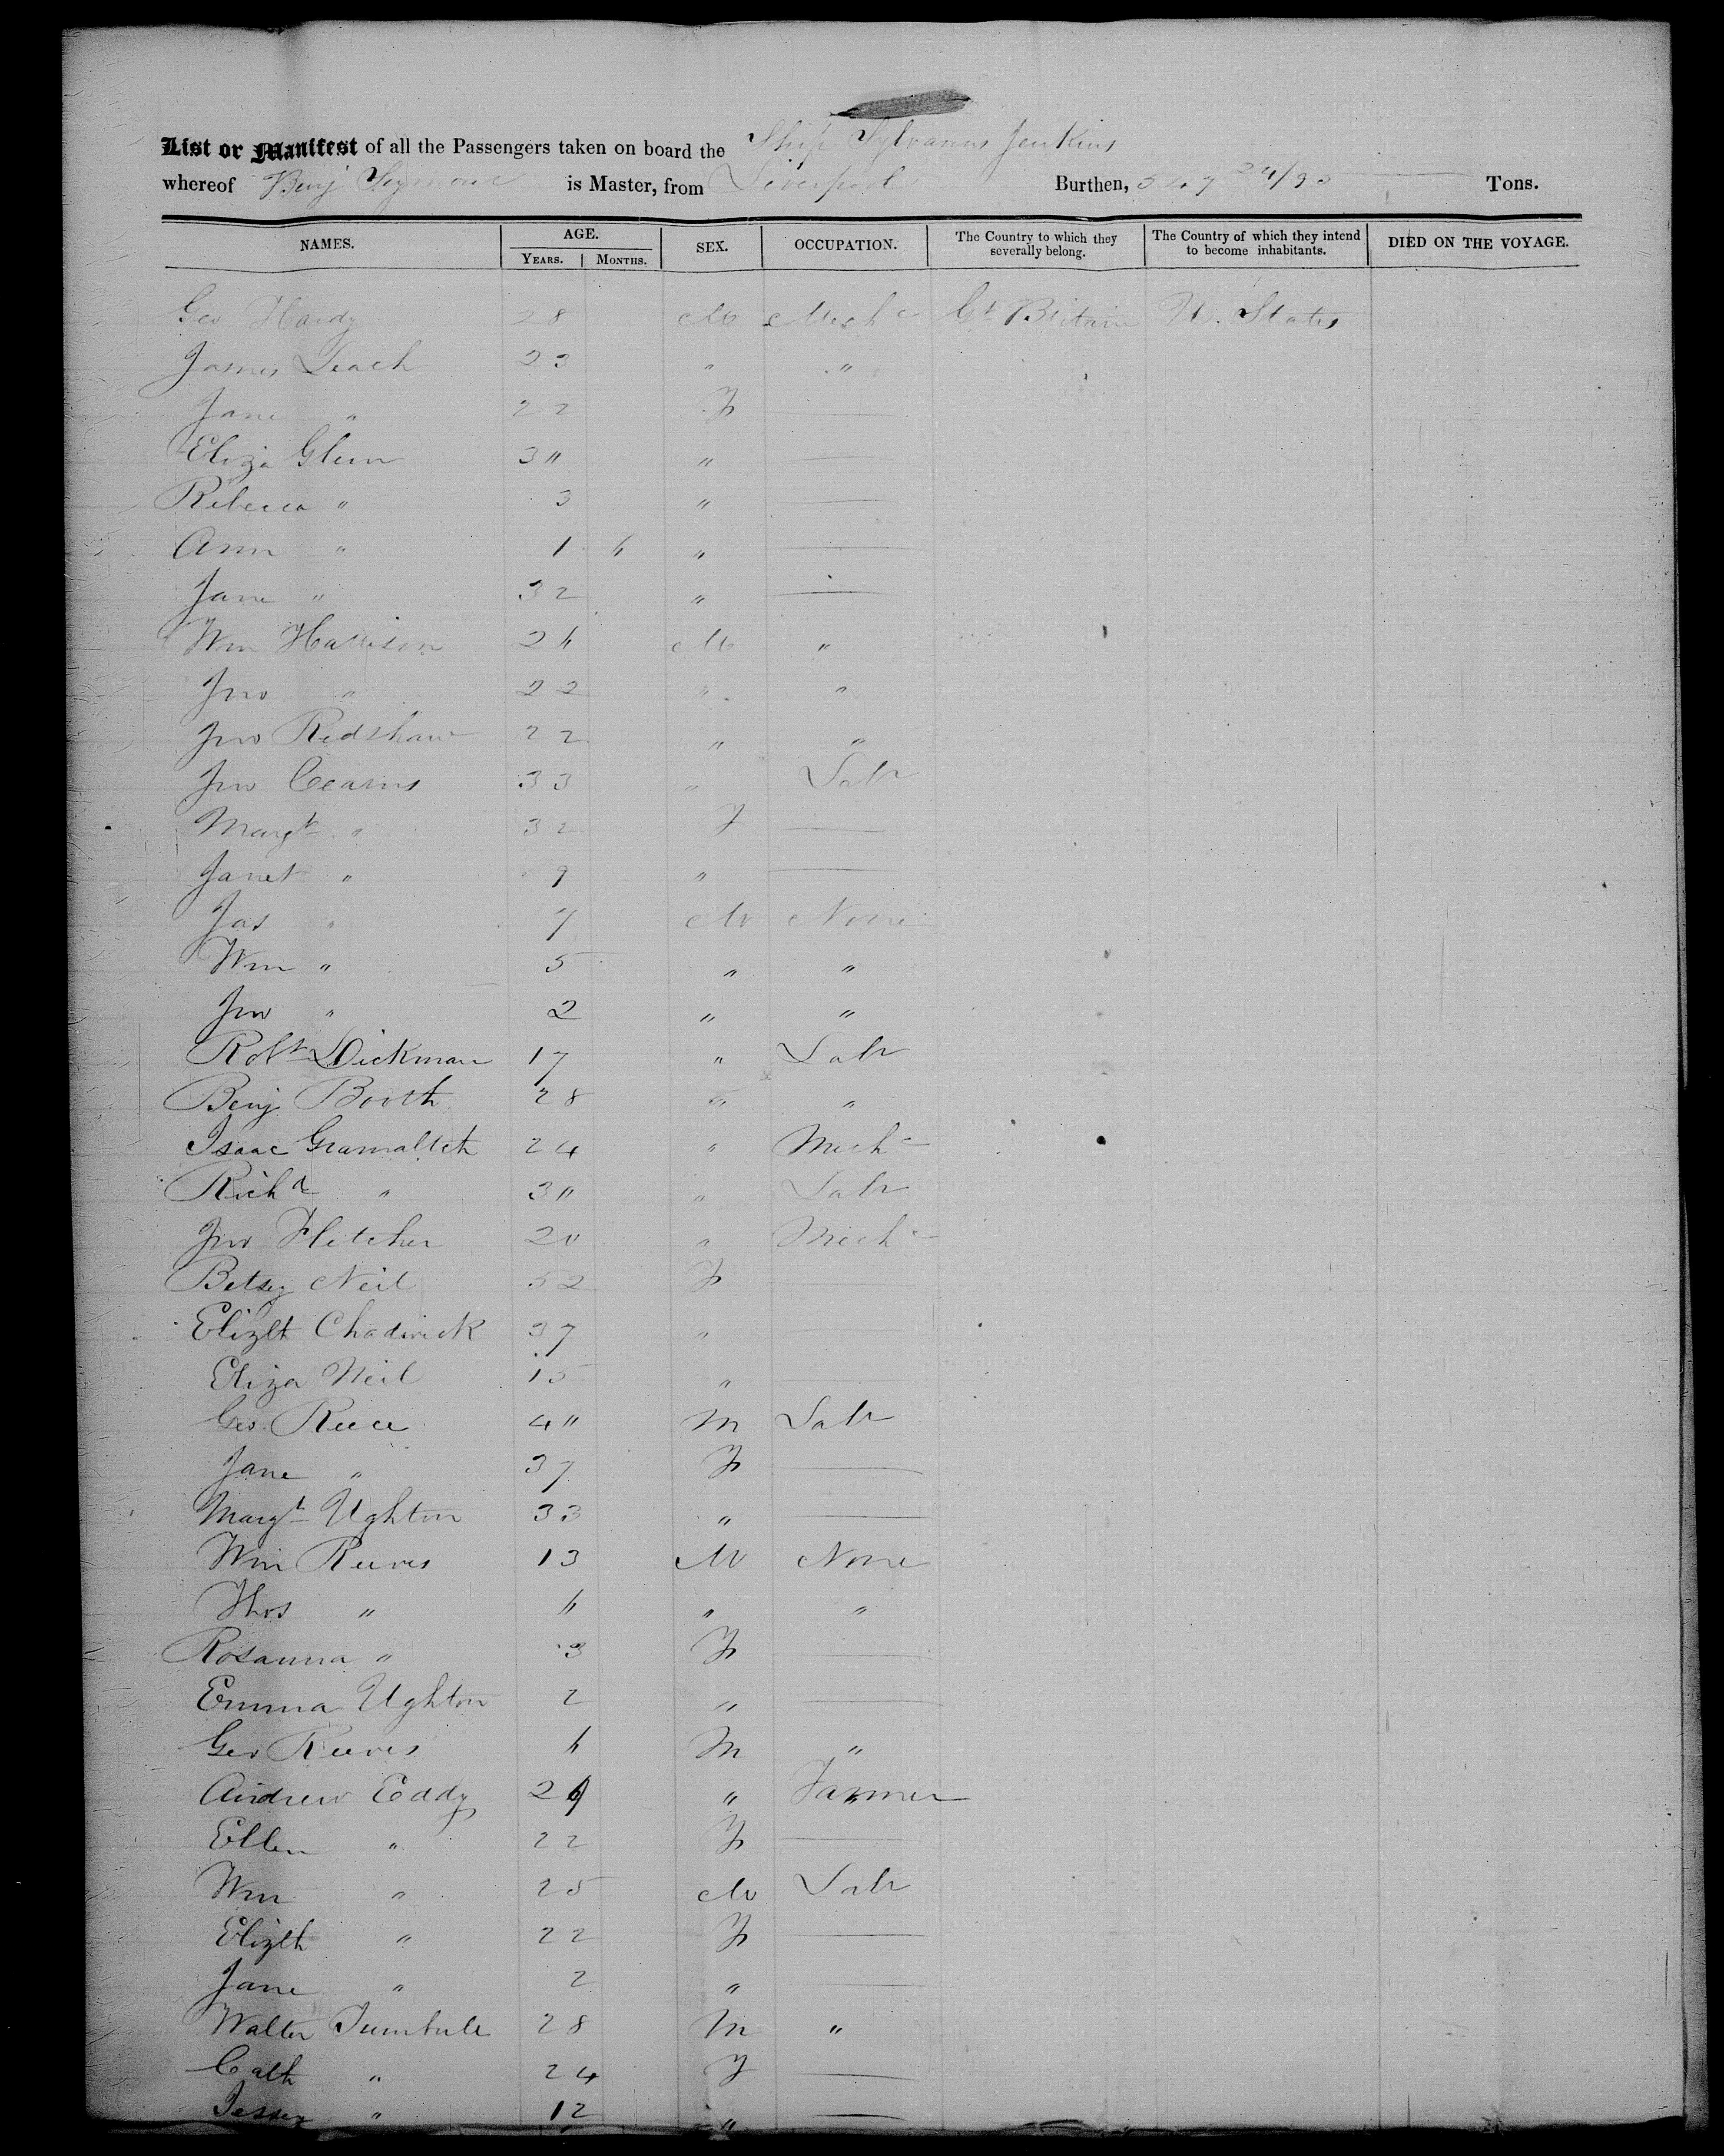 List or Manifest of all the Passengers taken on board the Ship Sylvanus Jenkins
whereof Benj Seymour is Master, from Liverpool Burthen, 547 /90 Tons.
NAMES. AGE. SEX. OCCUPATION. The Country to which they severally belong. The Country of which they intend to become inhabitants. DIED ON THE VOYAGE.
YEARS. MONTHS.
Geo Hardy 28 M Mechc Gt Britain U. States
James Leach 23 " "
Jane " 22 F
Eliza Glenn 30 "
Rebecca " 3 "
Ann " 1 6 "
Jane " 32 "
Wm Harrison 26 M "
Jno " 22 " "
Jno Redshaw 22 " "
Jno Cearns 33 " Labr
Margt " 32 F
Janet " 9 "
Jas " 7 M None
Wm " 5 " "
Jno " 2 " "
Robt Dickman 17 " Labr
Benj Booth 28 " "
Isaac 24 " Mechc
Richd " 30 " Labr
Jno Fletcher 20 " Mechc
Betsy Neil 52 F
Elizth Chadwick 37 "
Eliza Neil 15 "
Geo Reece 40 M Labr
Jane " 37 F
Margt Ughton 33 "
Wm Reeves 13 M None
Thos " 6 " "
Rosanna " 3 F
Emma Ughton 2 "
Geo Reeves 6 M "
Andrew Eddy " Farmer
Ellen " 22 F
Wm " 25 M Labr
Elizth " 22 F
Jane " 2 "
Walter Turnbull 28 M "
Cath " 24 F
Jessey " 12 "